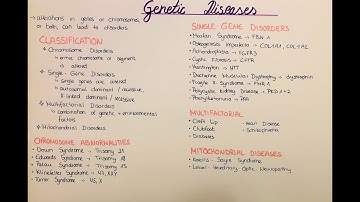 Genetic Diseases
• alterations in genes or chromosomes,
or both, can lead to disorders
CLASSIFICATION
Chromosome Disorders
→ entire chromosome or segment
is altered
Single-Gene Disorders
→ single genes are altered
→ autosomal dominant / recessive,
X-linked dominant / recessive
Multifactorial Disorders
→ combination of genetic + environmental
factors
Mitochondrial Disorders
CHROMOSOME ABNORMALITIES
• Down Syndrome → Trisomy 21
• Edwards Syndrome → Trisomy 18
• Patau Syndrome → Trisomy 13
• Klinefelter Syndrome → 47, XXY
• Turner Syndrome → 45, X
SINGLE-GENE DISORDERS
• Marfan Syndrome → FBN1
• Osteogenesis Imperfecta → COL1A1, COL1A2
• Achondroplasia → FGFR3
• Cystic Fibrosis → CFTR
• Huntington → HTT
• Duchenne Muscular Dystrophy → dystrophin
• Fragile X Syndrome → FMR1
• Polycystic Kidney Disease → PKD1+2
• Phenylketonuria → PAH
MULTIFACTORIAL
• Cleft Lip • Heart Disease
• Clubfoot • Schizophrenia
• Diabetes
MITOCHONDRIAL DISEASES
• Kearns-Sayre Syndrome
• Leber Hereditary Optic Neuropathy